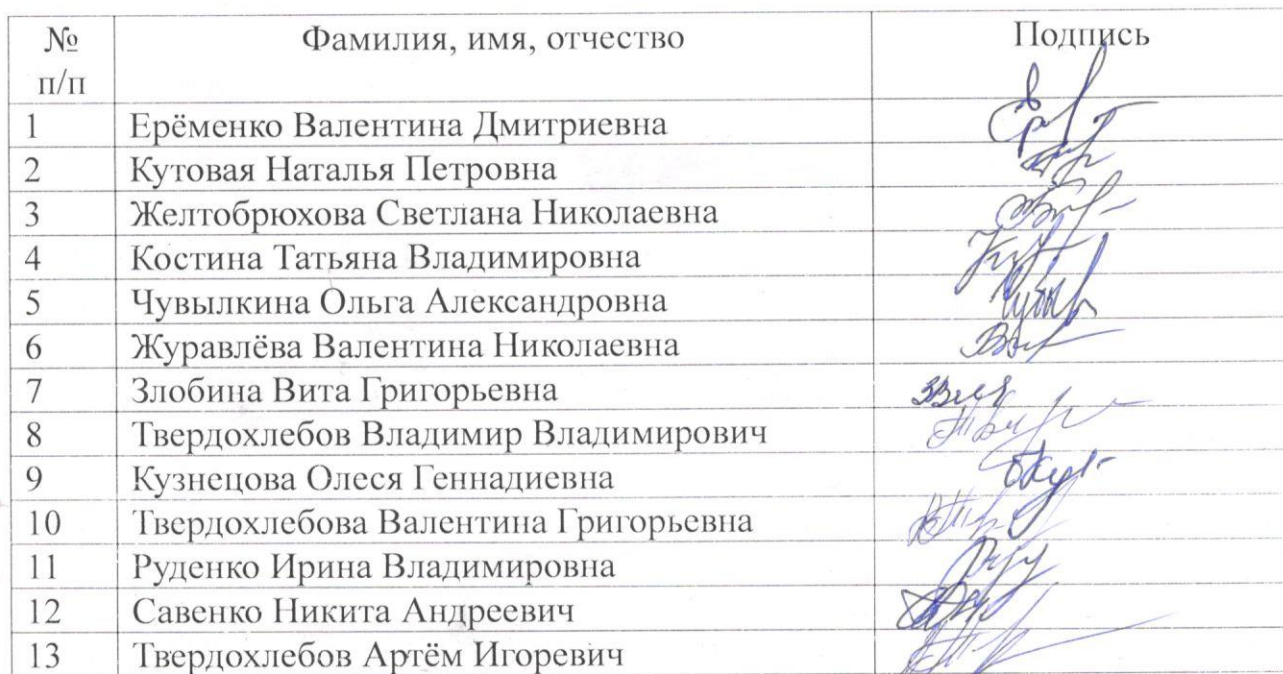 № п/п Фамилия, имя, отчество Подпись
1 Ерёменко Валентина Дмитриевна
2 Кутовая Наталья Петровна
3 Желтобрюхова Светлана Николаевна
4 Костина Татьяна Владимировна
5 Чувылкина Ольга Александровна
6 Журавлёва Валентина Николаевна
7 Злобина Вита Григорьевна
8 Твердохлебов Владимир Владимирович
9 Кузнецова Олеся Геннадиевна
10 Твердохлебова Валентина Григорьевна
11 Руденко Ирина Владимировна
12 Савенко Никита Андреевич
13 Твердохлебов Артём Игоревич